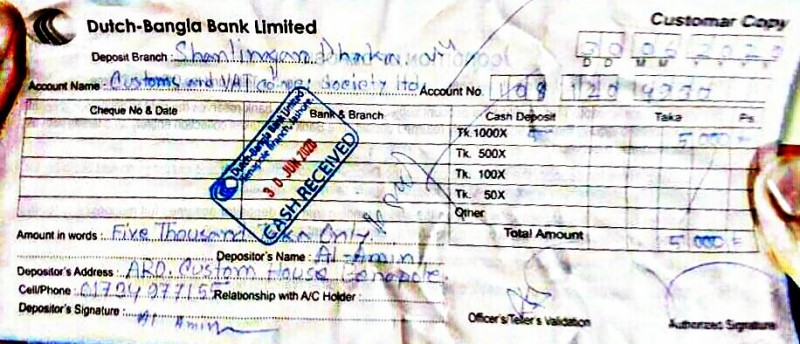 Dutch-Bangla Bank Limited
Customar Copy
Deposit Branch : Shantinagar, Dhaka
30 06 2020
D D M M Y Y Y Y
Account Name : Customs and VAT Society Ltd. Account No. 108 120
Cheque No & Date Bank & Branch Cash Deposit Taka Ps.
Tk. 1000X 5,000 =
Tk. 500X
Tk. 100X
Tk. 50X
Other
Dutch-Bangla Bank Limited
Benapole Branch, Jashore.
30 JUN 2020
CASH RECEIVED
Amount in words : Five Thousand Taka Only. Total Amount 5,000 =
Depositor's Name : Al-Amin
Depositor's Address : ARO, Custom House Benapole.
Cell/Phone : Relationship with A/C Holder :
Depositor's Signature : Al Amin
Officer's/Teller's Validation Authorized Signature